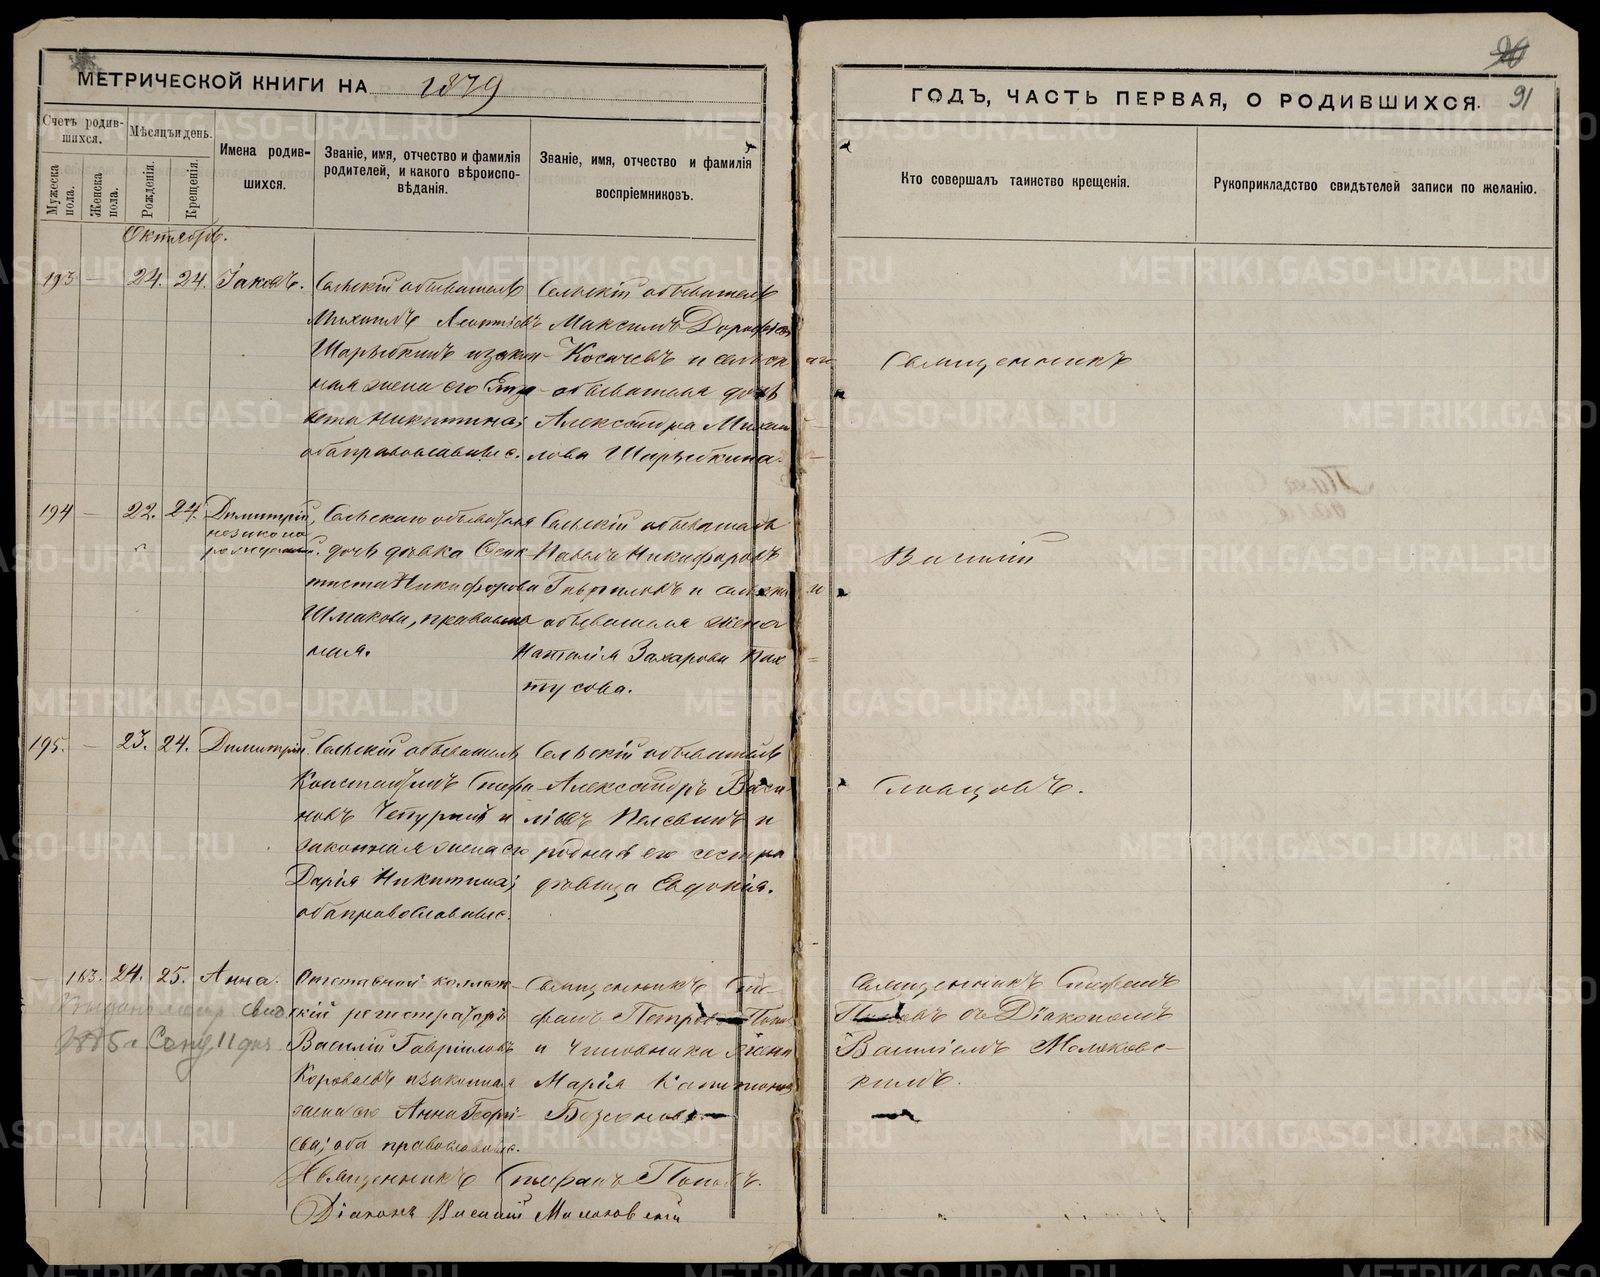 МЕТРИЧЕСКОЙ КНИГИ НА 1879
ГОДЪ, ЧАСТЬ ПЕРВАЯ, О РОДИВШИХСЯ.
91
Счетъ родившихся.
Мужеска пола.
Женска пола.
Мѣсяцъ и день.
Рожденія.
Крещенія.
Имена родившихся.
Званіе, имя, отчество и фамилія
родителей, и какого вѣроиспо-
вѣданія.
Званіе, имя, отчество и фамилія
воспріемниковъ.
Кто совершалъ таинство крещенія.
Рукоприкладство свидѣтелей записи по желанію.
Октябрь.
193 — 24. 24. Іаковъ.
Сельскій обыватель
Михаилъ Леонтіевъ
Шарыбкинъ и закон-
ная жена его Елиза-
вета Никитина;
оба православные.
Сельскій обыватель
Максимъ Дорофѣев
Косачевъ и сельск
аго
обывателя дочь
Александра Михаи
лова Шарыбкина.
194 — 22. 24. Димитрій,
незаконо
рожденный.
Сельскаго обывателя
дочь дѣвка
Никифорова
Шмакова, православ
ная.
Сельскій обыватель
Павелъ Никифоровъ
Гавриловъ и сельска
го
обывателя жена
Наталія Захарова Пах
тусова.
195. — 23. 24. Димитрій.
Сельскій обыватель
Константинъ Стефа-
новъ Чепурный и
законная жена его
Дарія Никитина;
оба православные.
Сельскій обыватель
Александръ Васи-
ліевъ и
родная его сестра
дѣвица Евдокія.
Священникъ
Василій
Словцовъ.
— 163. 24. 25. Анна.
Отставной коллеж-
скій регистраторъ
Василій Гавріиловъ
Короваевъ и законная
жена его Анна Георгі-
ева; оба православные.
Священникъ Сте-
фанъ Петровъ Попов
и чиновника жена
Марія Капитонова
Священникъ Стефанъ
Поповъ съ Діакономъ
Василіемъ Молоковс-
кимъ.
Священникъ Стефанъ Поповъ.
Діаконъ Василій Молоковскій
METRIKI.GASO-URAL.RU